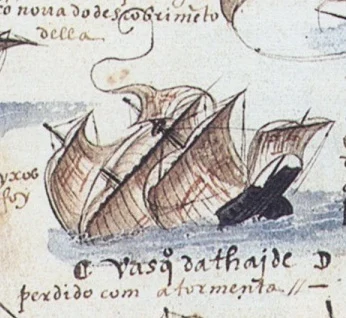 cõ nova do descobrimẽto
della
foy
Vasqo dathaide D
perdido com a tormenta // —